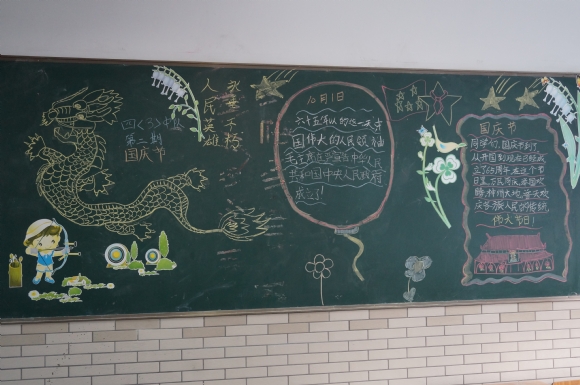 四(3)中队
第二期
国庆节
人民英雄
永垂不朽
10月1日
六十五年以的这一天才
国伟大的人民领袖
毛主席在北京宣告中华人民
共和国中央人民政府
成立了!
国庆节
同学们,国庆节到了
从开国到现在已经成
立了65周年,在这个节
日里,万民齐欢,普天欢
庆,各族人民的佳节,
伟大节日!